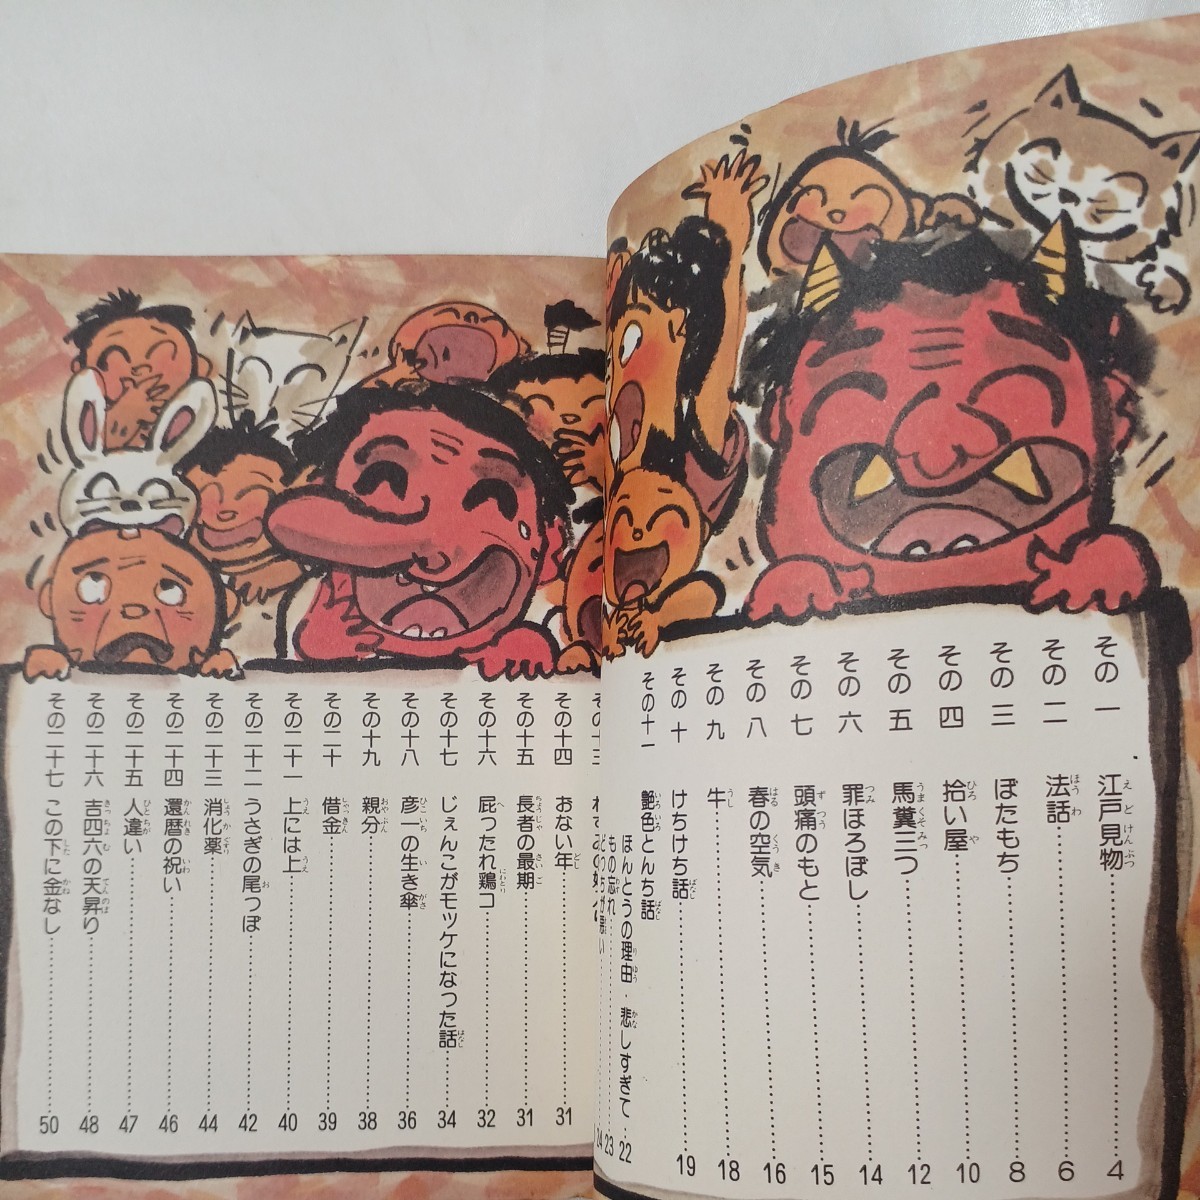 その一 江戸見物 4
その二 法話 6
その三 ぼたもち 8
その四 拾い屋 10
その五 馬糞三つ 12
その六 罪ほろぼし 14
その七 頭痛のもと 15
その八 春の空気 16
その九 牛 18
その十 けちけち話 19
その十一 艶色とんち話
ほんとうの理由 悲しすぎて 22
もの忘れ 23
どっちが悪い 24
その十三
その十四 おない年 31
その十五 長者の最期 31
その十六 屁ったれ鶏コ 32
その十七 じぇんこがモッケになった話 34
その十八 彦一の生き傘 36
その十九 親分 38
その二十 借金 39
その二十一 上には上 40
その二十二 うさぎの尾っぽ 42
その二十三 消化薬 44
その二十四 還暦の祝い 46
その二十五 人違い 47
その二十六 吉四六の天昇り 48
その二十七 この下に金なし 50